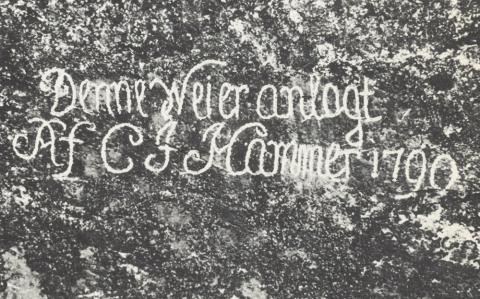 Denne Weier anlagt
Af C J Hammer 1790